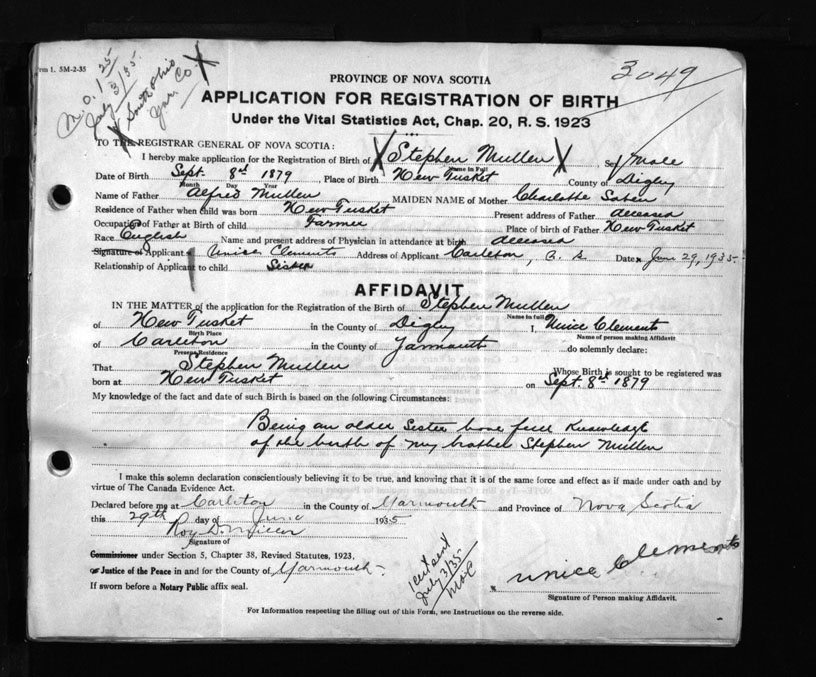 Form 1. 5M-2-35
M.O. 1 25
July 3/35
X South Ohio
Yar. Co. X
3049
PROVINCE OF NOVA SCOTIA
APPLICATION FOR REGISTRATION OF BIRTH
Under the Vital Statistics Act, Chap. 20, R. S. 1923
TO THE REGISTRAR GENERAL OF NOVA SCOTIA:
I hereby make application for the Registration of Birth of X Stephen Mullen X Sex Male
Name in Full
Date of Birth Sept. 8d 1879, Place of Birth New Tusket County of Digby
Month Day Year
Name of Father Alfred Mullen MAIDEN NAME of Mother Charlotte Saben
Residence of Father when child was born New Tusket Present address of Father deceased
Occupation of Father at Birth of child Farmer Place of birth of Father New Tusket
Race English Name and present address of Physician in attendance at birth deceased
Signature of Applicant Unice Clements Address of Applicant Carleton, Date June 29, 1935
Relationship of Applicant to child Sister
AFFIDAVIT
IN THE MATTER of the application for the Registration of the Birth of Stephen Mullen
Name in full
of New Tusket in the County of Digby I, Unice Clements
Birth Place Name of person making Affidavit
of Carleton in the County of Yarmouth do solemnly declare:
Present Residence
That Stephen Mullen Whose Birth is sought to be registered was
born at New Tusket on Sept. 8d 1879
My knowledge of the fact and date of such Birth is based on the following Circumstances:
Being an older Sister have full Knowledge
of the birth of my brother Stephen Mullen
I make this solemn declaration conscientiously believing it to be true, and knowing that it is of the same force and effect as if made under oath and by
virtue of The Canada Evidence Act.
Declared before me at Carleton in the County of Yarmouth and Province of Nova Scotia
this 29th day of June 1935
Roy D. Miller
Signature of
Commissioner under Section 5, Chapter 38, Revised Statutes, 1923,
or Justice of the Peace in and for the County of Yarmouth
If sworn before a Notary Public affix seal.
1 cert sent
July 3/35
X Unice Clements
Signature of Person making Affidavit.
For Information respecting the filling out of this Form, see Instructions on the reverse side.